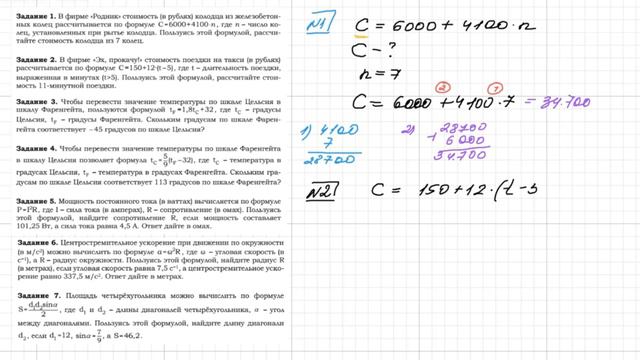 Задание 1. В фирме «Родник» стоимость (в рублях) колодца из железобетон-
ных колец рассчитывается по формуле C=6000+4100·n, где n – число ко-
лец, установленных при рытье колодца. Пользуясь этой формулой, рассчи-
тайте стоимость колодца из 7 колец.
Задание 2. В фирме «Эх, прокачу!» стоимость поездки на такси (в рублях)
рассчитывается по формуле C=150+12·(t−5), где t – длительность поездки,
выраженная в минутах (t>5). Пользуясь этой формулой, рассчитайте стои-
мость 11-минутной поездки.
Задание 3. Чтобы перевести значение температуры по шкале Цельсия в
шкалу Фаренгейта, пользуются формулой tF=1,8tC+32, где tC – градусы
Цельсия, tF – градусы Фаренгейта. Скольким градусам по шкале Фарен-
гейта соответствует −45 градусов по шкале Цельсия?
Задание 4. Чтобы перевести значение температуры по шкале Фаренгейта
в шкалу Цельсия позволяет формула tC=5/9(tF−32), где tC – температура в
градусах Цельсия, tF – температура в градусах Фаренгейта. Скольким гра-
дусам по шкале Цельсия соответствует 113 градусов по шкале Фаренгейта?
Задание 5. Мощность постоянного тока (в ваттах) вычисляется по формуле
P=I²R, где I – сила тока (в амперах), R – сопротивление (в омах). Пользуясь
этой формулой, найдите сопротивление R, если мощность составляет
101,25 Вт, а сила тока равна 4,5 А. Ответ дайте в омах.
Задание 6. Центростремительное ускорение при движении по окружности
(в м/с²) можно вычислить по формуле a=ω²R, где ω – угловая скорость (в
с⁻¹), а R – радиус окружности. Пользуясь этой формулой, найдите радиус R
(в метрах), если угловая скорость равна 7,5 с⁻¹, а центростремительное уско-
рение равно 337,5 м/с². Ответ дайте в метрах.
Задание 7. Площадь четырёхугольника можно вычислить по формуле
S=d₁d₂sinα/2, где d₁ и d₂ – длины диагоналей четырёхугольника, α – угол
между диагоналями. Пользуясь этой формулой, найдите длину диагонали
d₂, если d₁=12, sinα=7/9, а S=46,2.
№1 C = 6000 + 4100·n
C – ?
n = 7
② ①
C = 6000 + 4100·7 = 34.700
1) 4100 2) 28700
7 + 6000
28700 34.700
№2 C = 150+12·(t −5